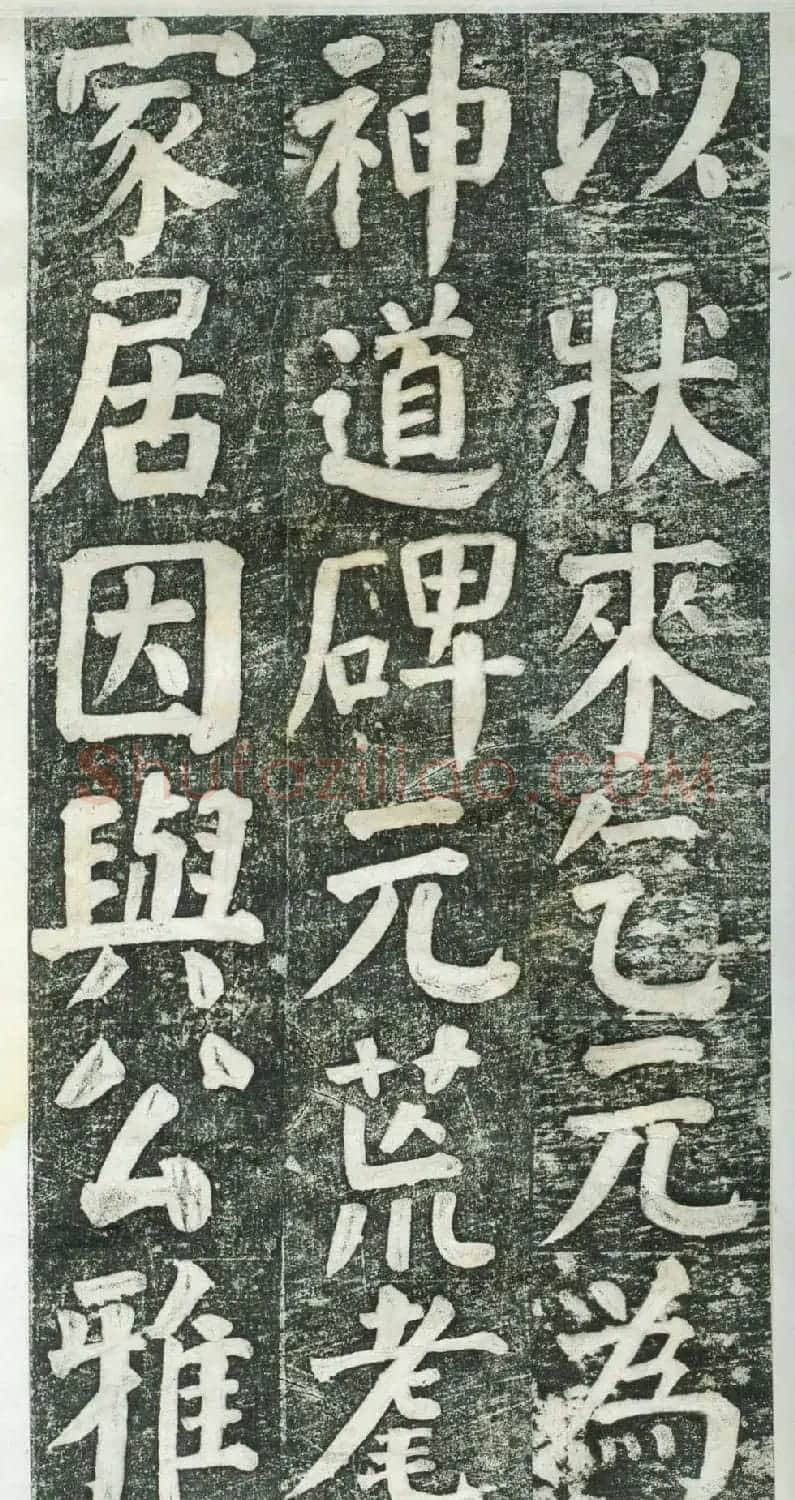 以狀來乞元為
神道碑元荒耄
家居因與公雅
Shufaziliao.COM